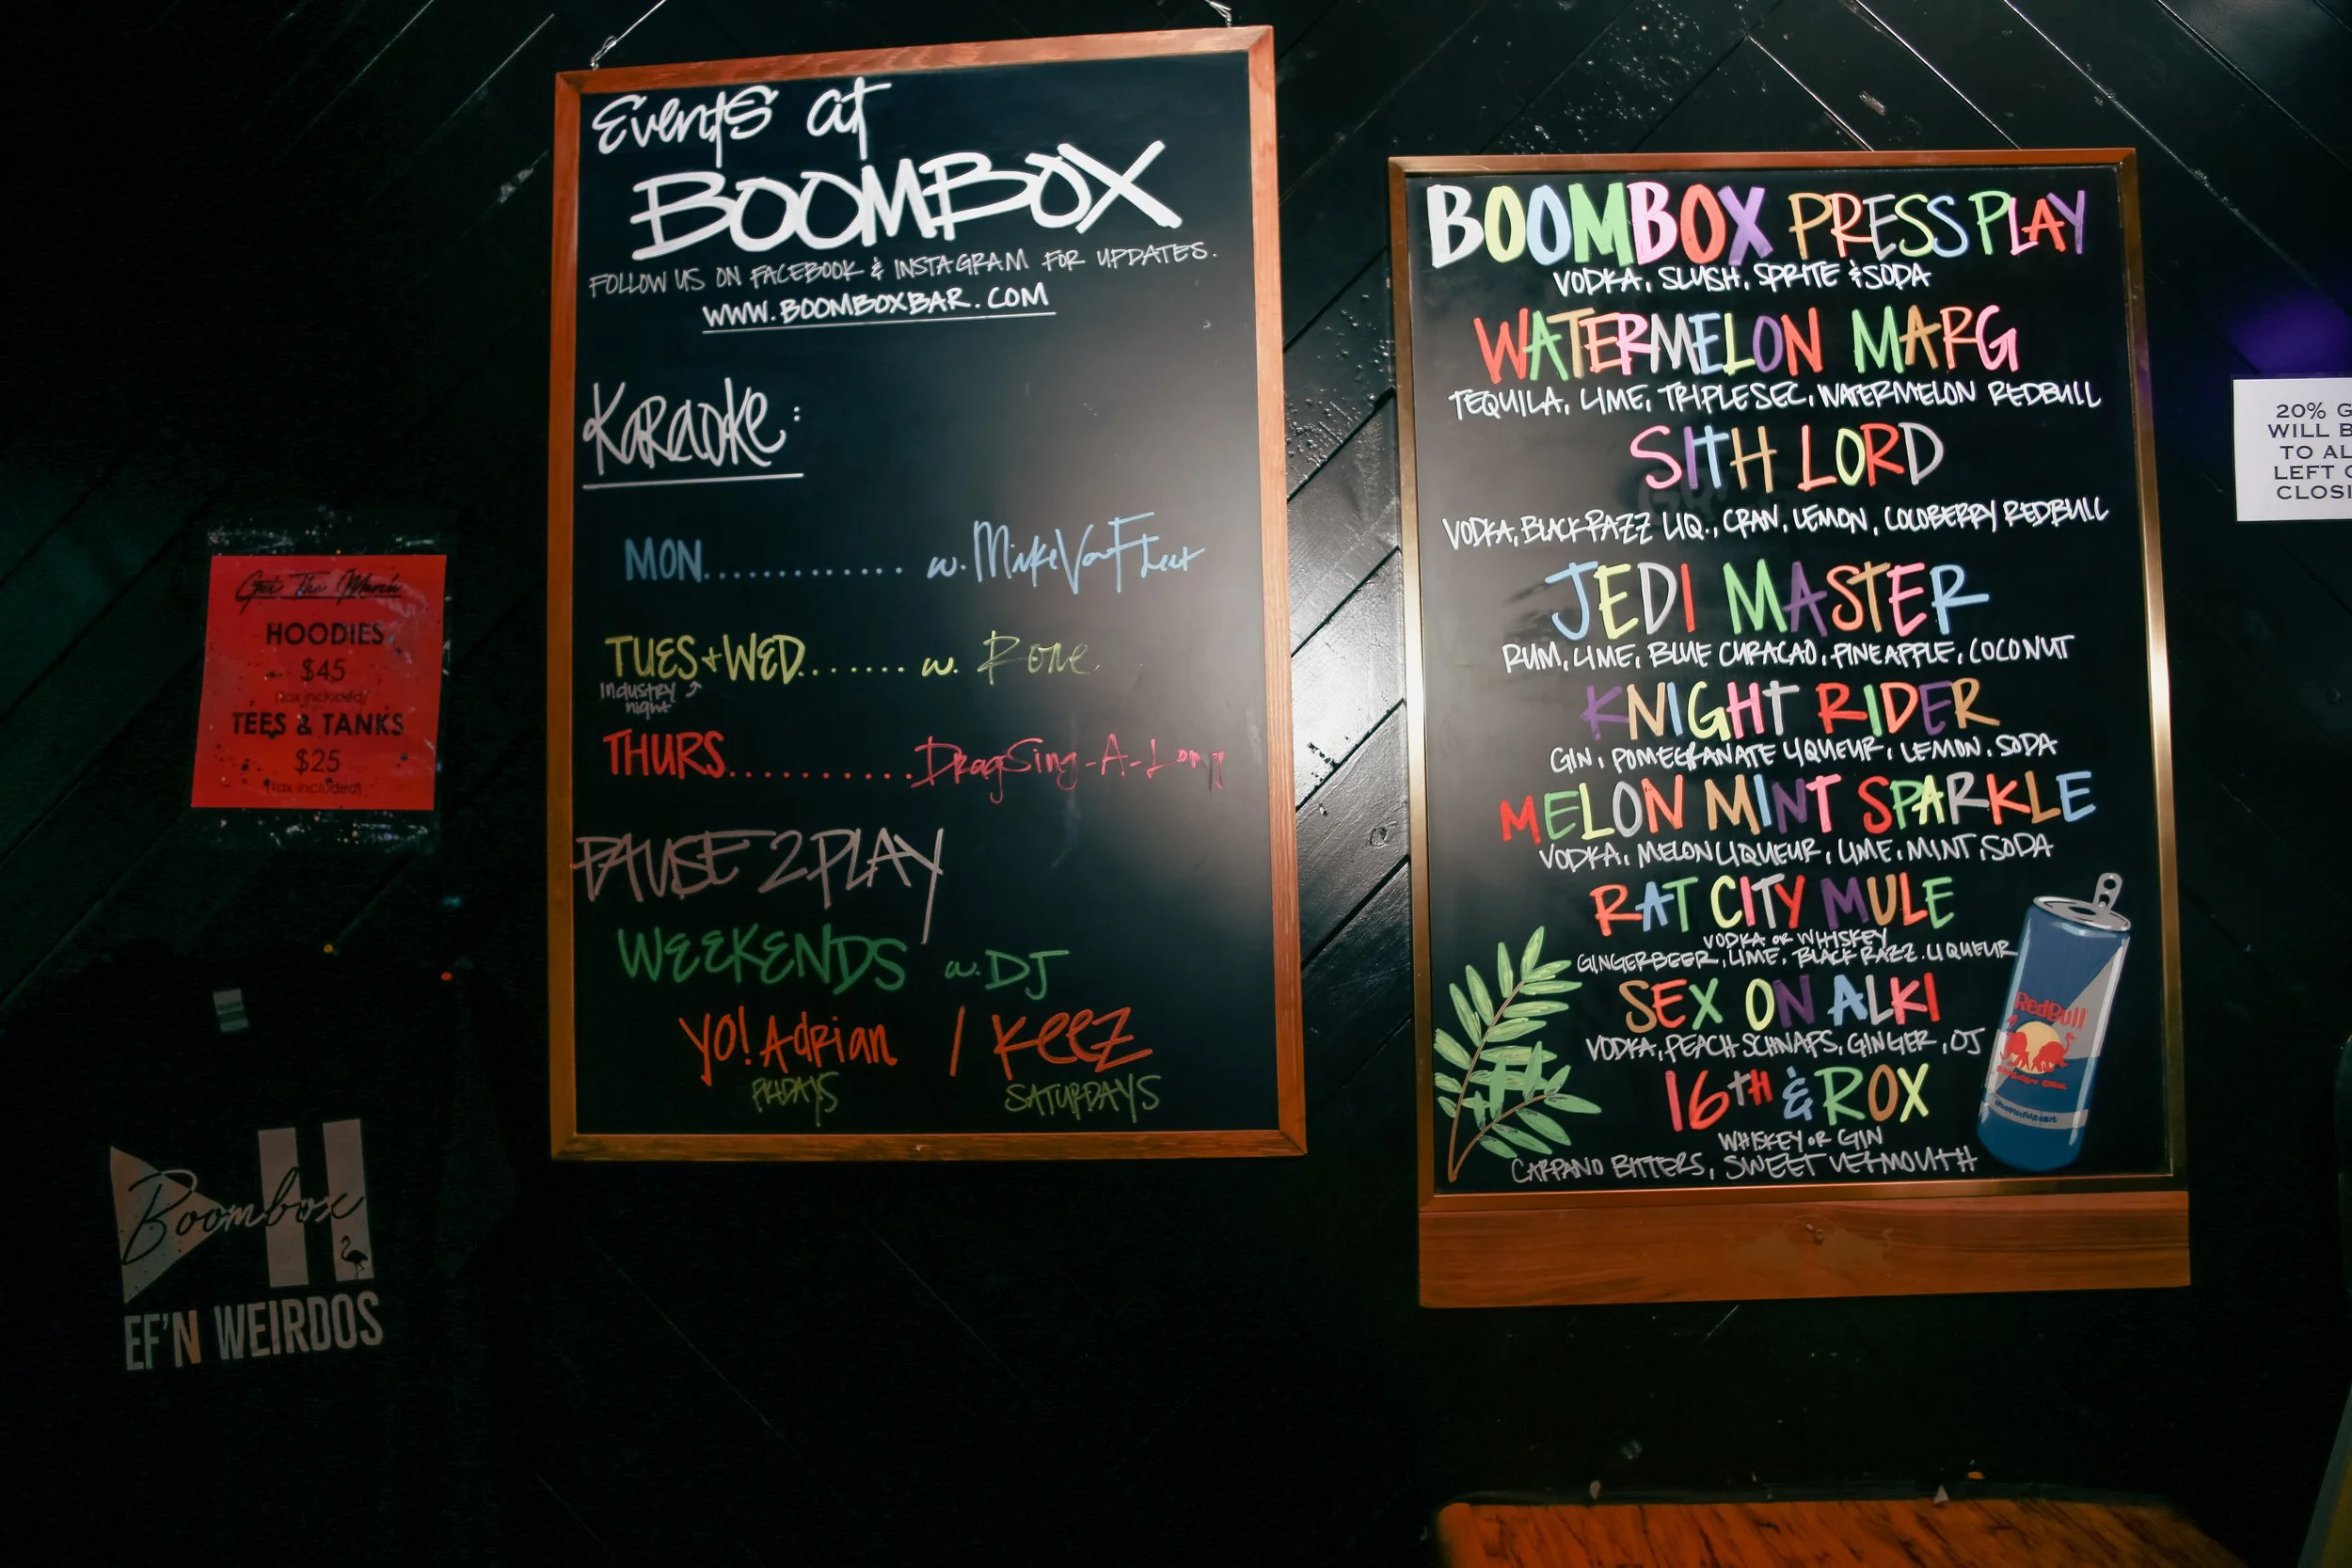 Events at
BOOMBOX
FOLLOW US ON FACEBOOK & INSTAGRAM FOR UPDATES.
WWW.BOOMBOXBAR.COM
KARAOKE:
MON............. w. Mike Van Fleet
TUES+WED....... w. Rone
Industry night
THURS........... Drag Sing-A-Long
PAUSE 2 PLAY
WEEKENDS w. DJ
YO! Adrian / Keez
FRIDAYS SATURDAYS
BOOMBOX PRESS PLAY
VODKA, SLUSH, SPRITE & SODA
WATERMELON MARG
TEQUILA, LIME, TRIPLE SEC, WATERMELON REDBULL
SITH LORD
VODKA, BLACK RAZZ LIQ., CRAN, LEMON, COCOBERRY REDBULL
JEDI MASTER
RUM, LIME, BLUE CURACAO, PINEAPPLE, COCONUT
KNIGHT RIDER
GIN, POMEGRANATE LIQUEUR, LEMON, SODA
MELON MINT SPARKLE
VODKA, MELON LIQUEUR, LIME, MINT, SODA
RAT CITY MULE
VODKA OR WHISKEY
GINGERBEER, LIME, BLACK RAZZ. LIQUEUR
SEX ON ALKI
VODKA, PEACH SCHNAPS, GINGER, OJ
16TH & ROX
WHISKEY OR GIN
CARPANO BITTERS, SWEET VERMOUTH
RedBull
Get The Merch
HOODIES
$45
(tax included)
TEES & TANKS
$25
(tax included)
Boombox
EF'N WEIRDOS
20% G
WILL B
TO AL
LEFT
CLOSI